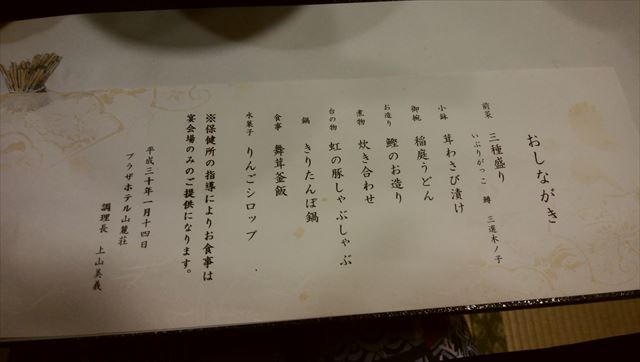 おしながき
前菜 三種盛り
いぶりがっこ 鰰 三連木ノ子
小鉢 茸わさび漬け
御椀 稲庭うどん
お造り 鰹のお造り
煮物 炊き合わせ
台の物 虹の豚しゃぶしゃぶ
鍋 きりたんぽ鍋
食事 舞茸釜飯
水菓子 りんごシロップ
※保健所の指導によりお食事は
宴会場のみのご提供になります。
平成三十年一月十四日
プラザホテル山麓荘
調理長 上山美義